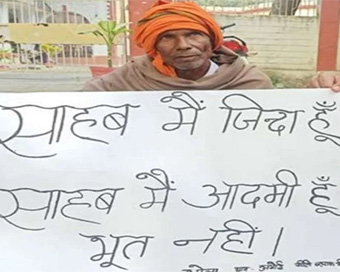 साहब मैं जिन्दा हूँ
साहब मैं आदमी हूँ
भूत नहीं।